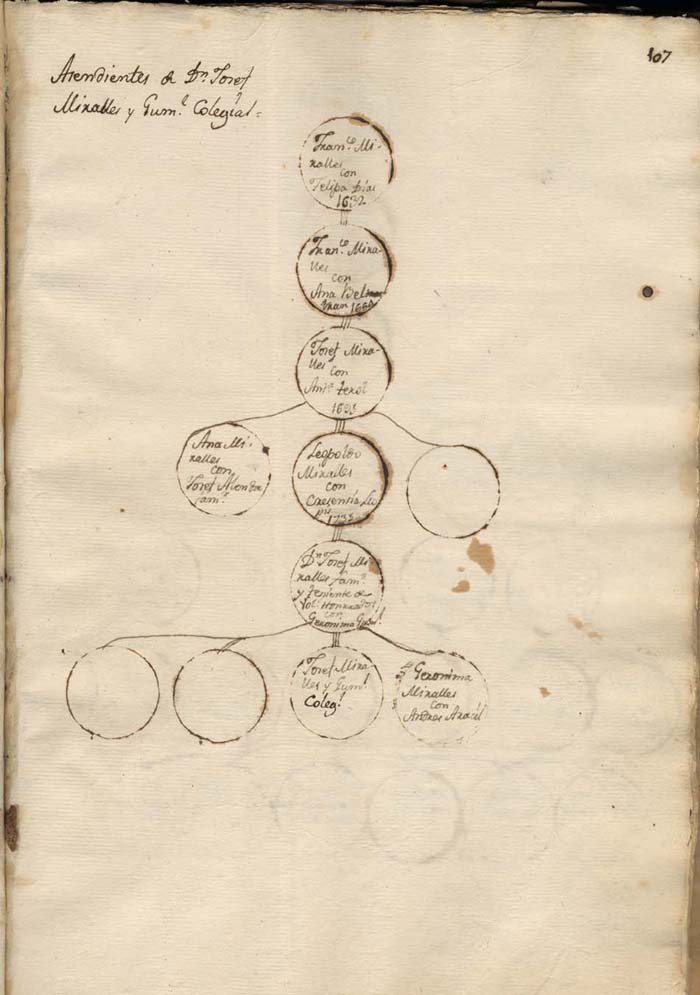 107
Asendientes de Dn. Josef
Miralles y Gum.l Colegial =
Fran.co Mi-
ralles
con
Felipa Dias
1632
Fran.co Mira-
lles
con
Ana Bel
tran
Josef Mira-
lles
con
Ant.a
Ana Mi-
ralles
con
Josef
fam.r
Leopoldo
Miralles
con
Cresensia
Dn. Josef Mi-
ralles fam.r
y Teniente de
Honrrados
con
Geronima
Josef Mira
lles y Gum.l
Coleg.l
Geronima
Miralles
con
Andres